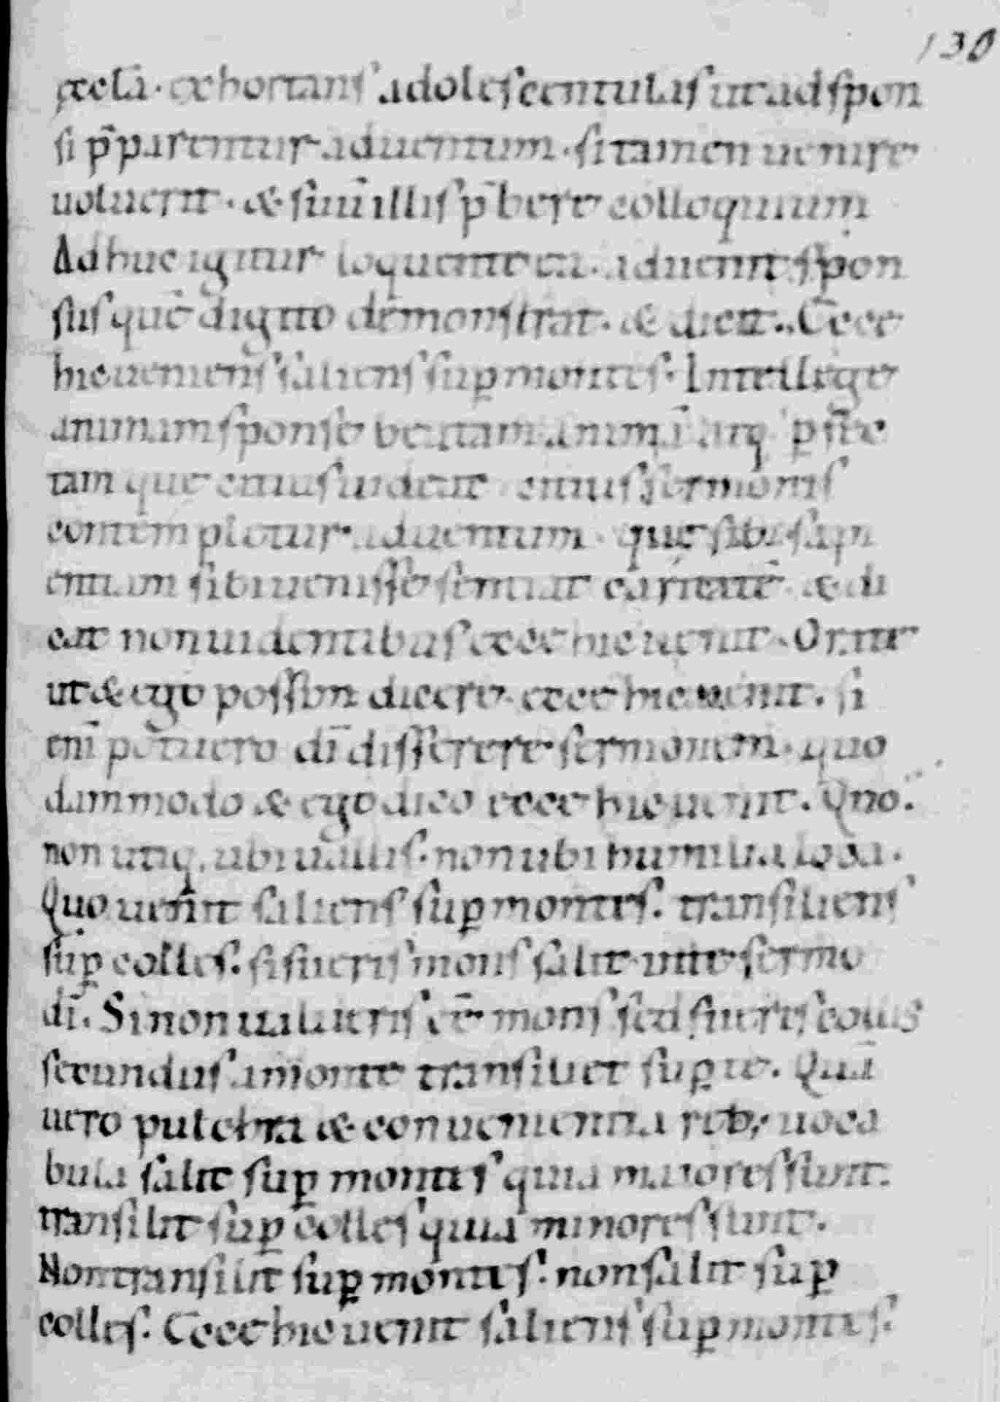 130
exhortans adolescentulas ut ad spon
si p̄parentur aduentum · si tamen uenire
uoluerit · & suū illis p̄bere colloquium
Adhuc igitur loquente ea · aduenit spon
sus quē digito demonstrat · & dicit .. Ecce
hic ueniens saliens suꝑ montes · Intellige
animam sponse beatam
tam que cuius uideat cuius sermonis
contempletur aduentum · quę sibi sapi
entiam sibi uenisse sentiat caritatē · & di
cat non uidentibus ecce hic uenit · Orate
ut & ego possim dicere · ecce hic uenit . si
eni potuero dī disserere sermonem · quo
dammodo & ego dico ecce hic uenit . Quo .
non utiq, ubi uallis · non ubi humilia loca .
Quo uenit saliens suꝑ montes . transiliens
suꝑ colles . si fueris mons salit in te sermo
dī . Si non ualueris eē mons sed fueris collis
secundus a monte transiliet suꝑ te . Quā
uero pulchra & conuenientia reb; uoca
bula salit suꝑ montes quia maiores sunt .
transilit suꝑ colles quia minores sunt .
Non transilit suꝑ montes · non salit suꝑ
colles . Ecce hic uenit saliens suꝑ montes .